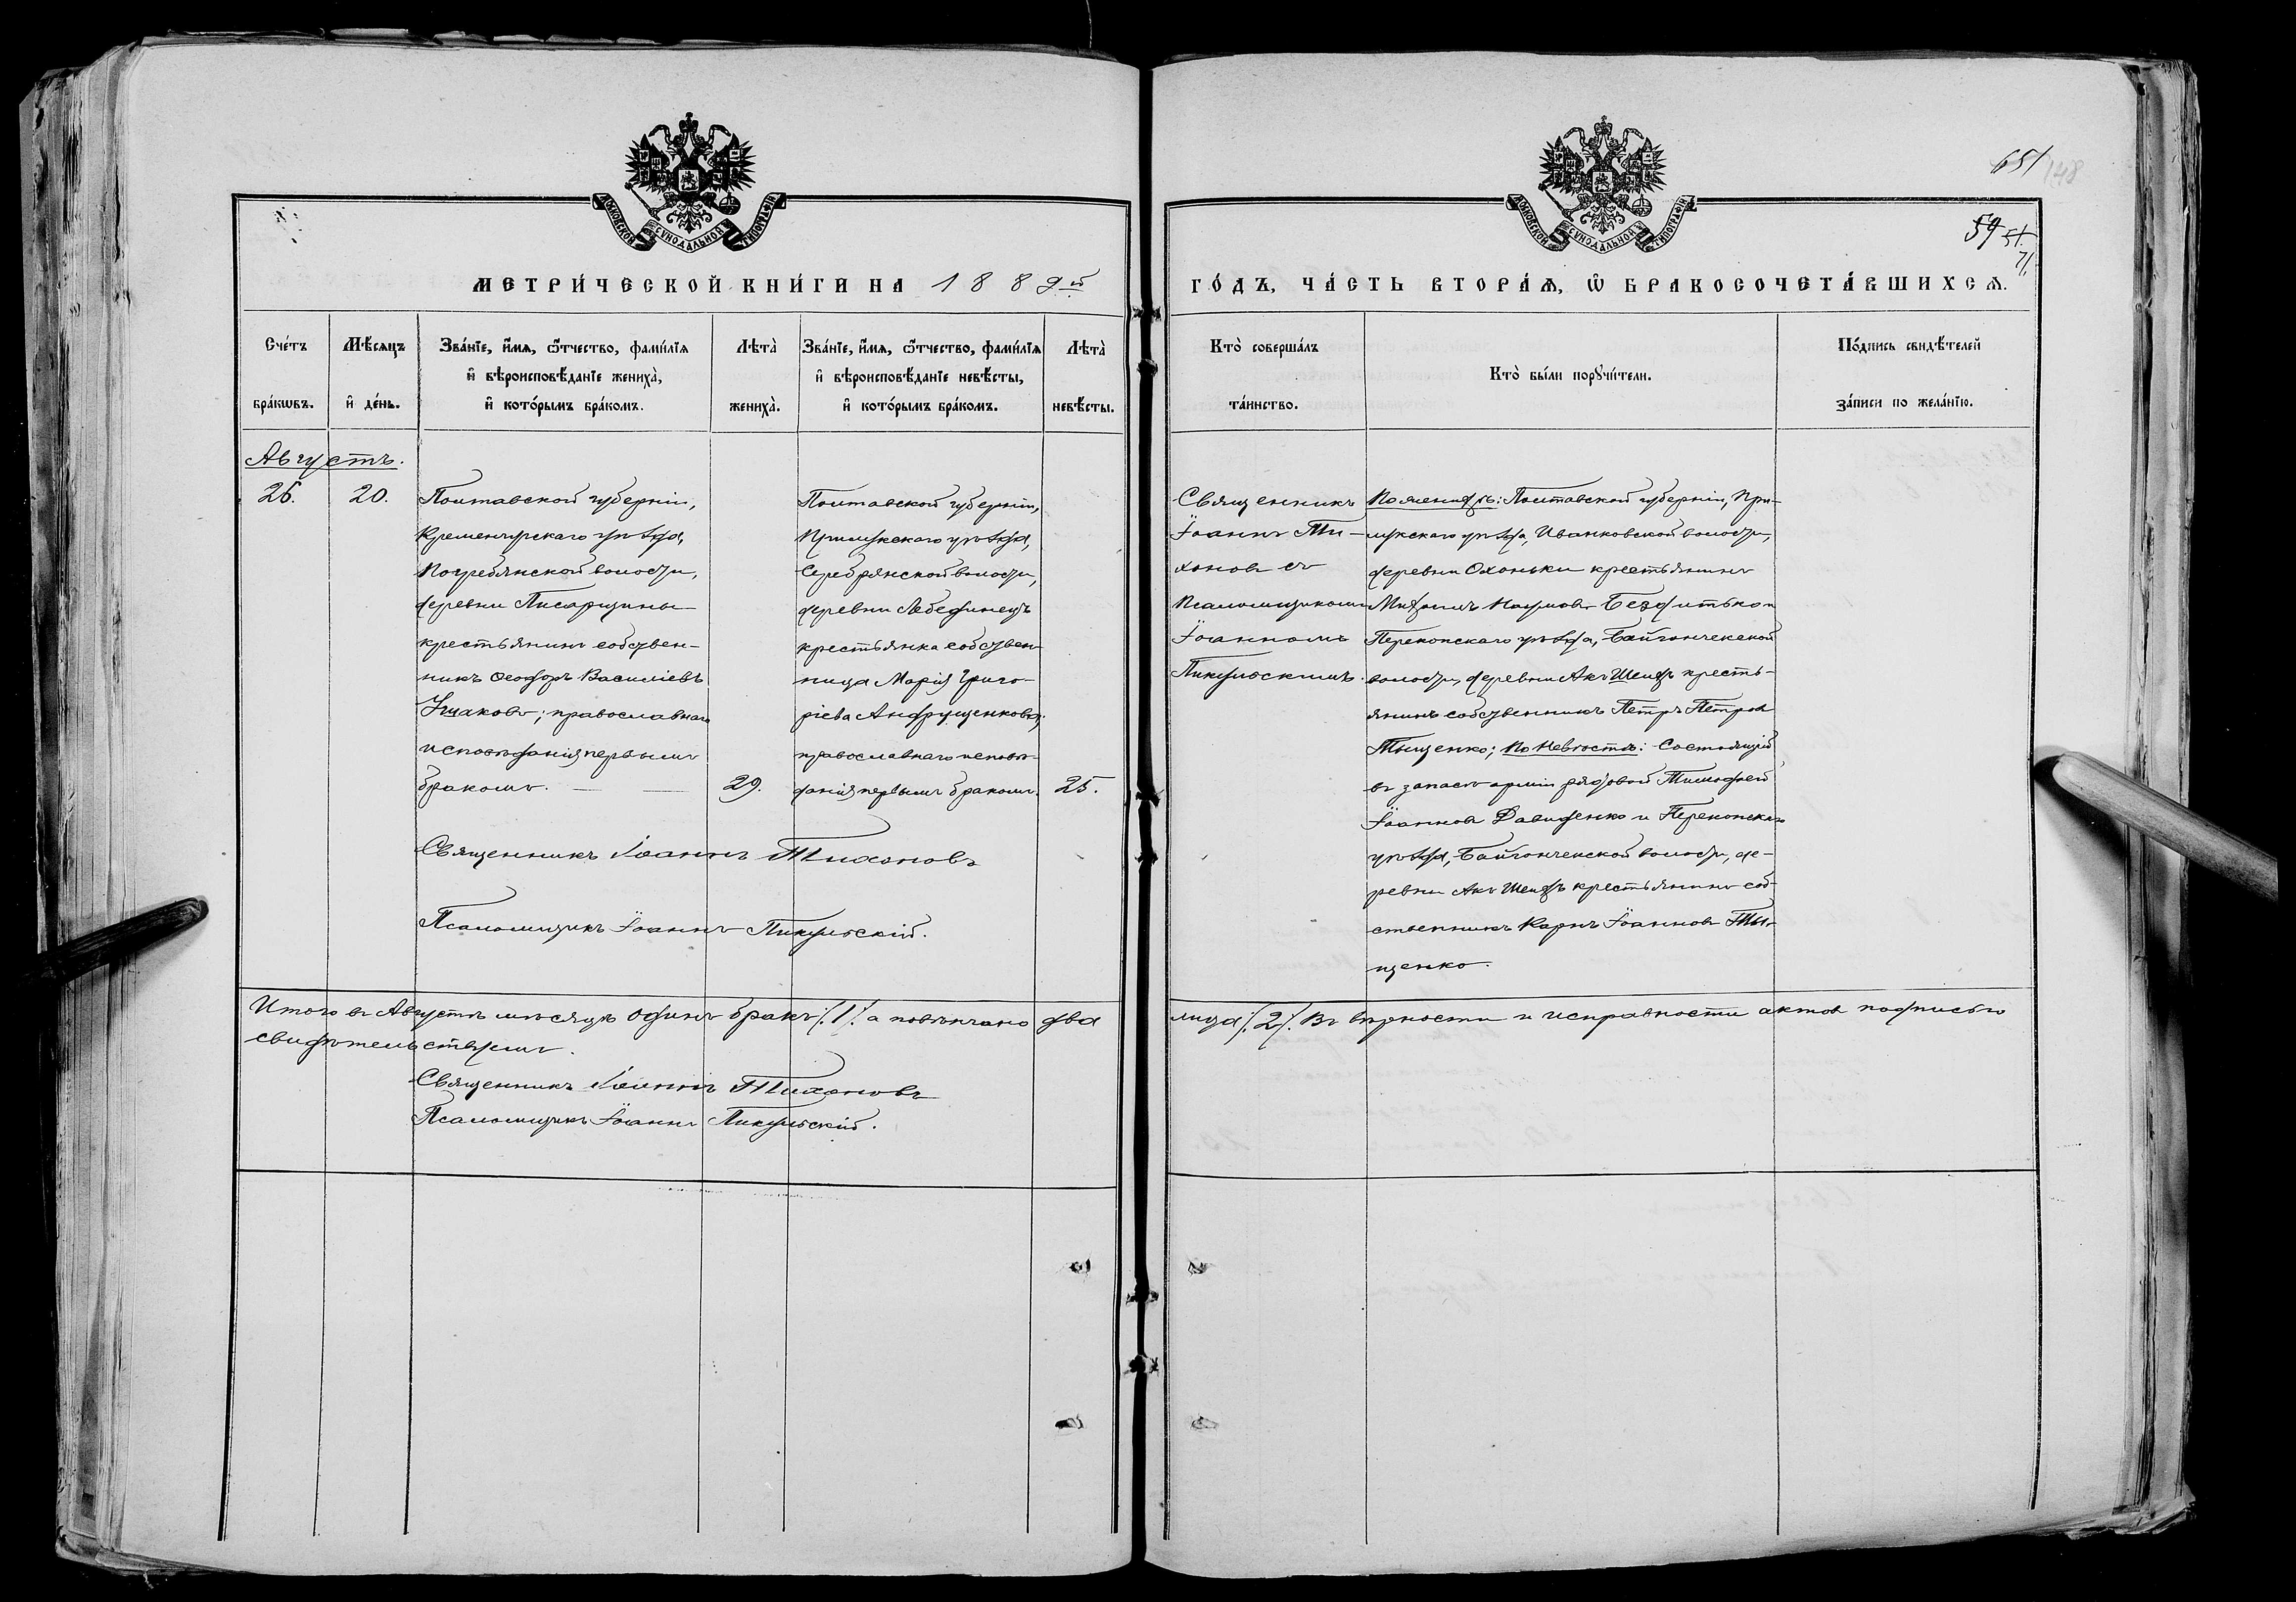 651 148
59 51. 71.
МОСКОВСКОЙ СѴНОДАЛЬНОЙ ТИПОГРАФІИ
МОСКОВСКОЙ СѴНОДАЛЬНОЙ ТИПОГРАФІИ
МЕТРИ́ЧЕСКОЙ КНИ́ГИ НА 1889й
ГО́ДЪ, ЧА́СТЬ ВТОРА́Ѧ, Ѽ БРАКОСОЧЕТА́ВШИХСѦ.
Сче́тъ
бра́кѡвъ.
Мѣ́сѧцъ
и҆ де́нь.
Зва́нїе, и҆́мѧ, ѻ҆́тчество, фами́лїѧ
и҆ вѣроисповѣ́данїе жениха̀,
и҆ кото́рымъ бра́комъ.
Лѣта̀
жениха̀.
Зва́нїе, и҆́мѧ, ѻ҆́тчество, фами́лїѧ
и҆ вѣроисповѣ́данїе невѣ́сты,
и҆ кото́рымъ бра́комъ.
Лѣта̀
невѣ́сты.
Кто̀ соверша́лъ
та́инство.
Кто̀ бы́ли порꙋчи́тели.
По́дпись свидѣ́телей
за́писи по жела́нїю.
Августъ.
26.
20.
Полтавской губерніи,
Кременчугскаго уѣзда,
Погребянской волости,
деревни Писарщины
крестьянинъ собствен-
никъ Ѳеодоръ Василіевъ
Ушаковъ; православнаго
исповѣданія первымъ
бракомъ.
29.
Полтавской губерніи,
Прилукскаго уѣзда,
Серебрянской волости,
деревни Лебединецъ
крестьянка собствен-
ница Марія Григо-
ріева Андрущенкова,
православнаго исповѣ-
данія первымъ бракомъ.
25.
Священникъ
Іоаннъ Ти-
хоновъ съ
Псаломщикомъ
Іоанномъ
Пикульскимъ.
По женихѣ: Полтавской губерніи, При-
лукскаго уѣзда, Иванковской волости,
деревни Охоньки крестьянинъ
Михаилъ Наумовъ и
Перекопскаго уѣзда, Байгончекской
волости, деревни Акъ Шеихъ кресть-
янинъ собственникъ Петръ Петровъ
Тыщенко; По Невѣстѣ: Состоящій
въ запасѣ арміи рядовой Тимофей
Іоанновъ Давиденко и Перекопскаго
уѣзда, Байгончекской волости, де-
ревни Акъ Шеихъ крестьянинъ соб-
ственникъ Карпъ Іоанновъ Ты-
щенко.
Священникъ Іоаннъ Тихоновъ
Псаломщикъ Іоаннъ Пикульскій.
Итого въ Августѣ мѣсяцѣ одинъ бракъ /.1./ а повѣнчано два лица /.2/. Въ вѣрности и исправности актовъ подписью
свидѣтельствуемъ.
Священникъ Іоаннъ Тихоновъ
Псаломщикъ Іоаннъ Пикульскій.